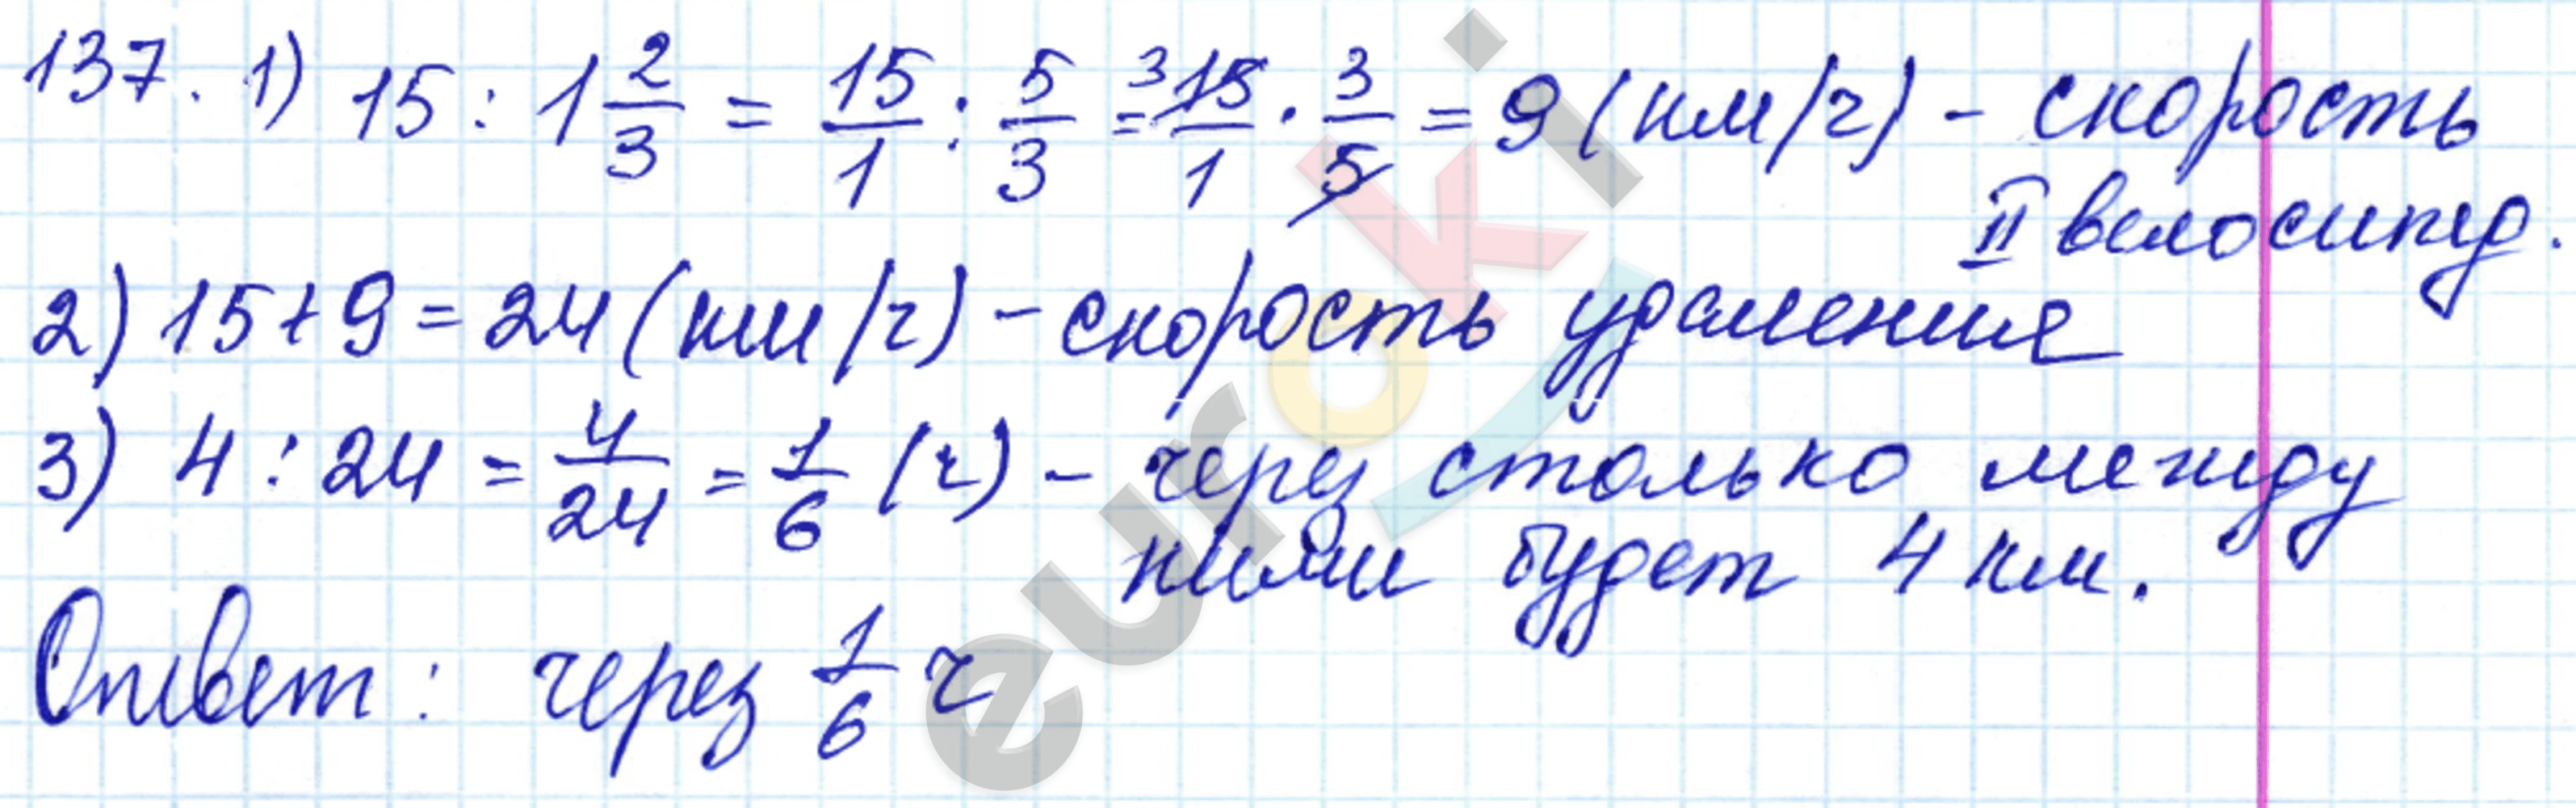 137. 1) 15 : 1 2/3 = 15/1 : 5/3 = ³15/1 · 3/5 = 9 (км/ч) - скорость
II велосипед.
2) 15 + 9 = 24 (км/ч) - скорость удаления
3) 4 : 24 = 4/24 = 1/6 (ч) - через столько между
ними будет 4 км.
Ответ: через 1/6 ч
euroki